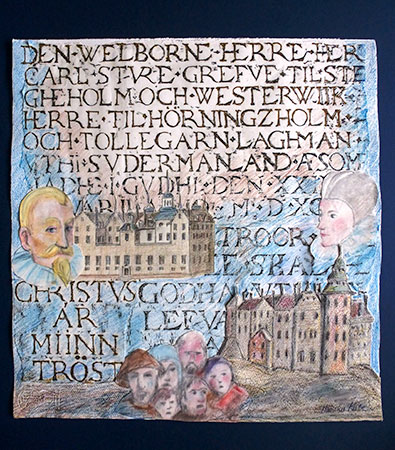 DEN · WELBORNE · HERRE · HER
CARL · STVRE · GREFVE · TIL · STE
GHEHOLM · OCH · WESTERWIIK ·
HERRE · TIL · HÖRNINGZHOLM ·
OCH · TOLLEGARN · LAGHMAN ·
VTHI · SVDERMANLAND · ÆSOM
I · GVDHI · DEN · XXI
M · D · XC
TROOR
SKAL
CHRISTVS GODHA
ÄR LEFVA
MIINN
TRÖST